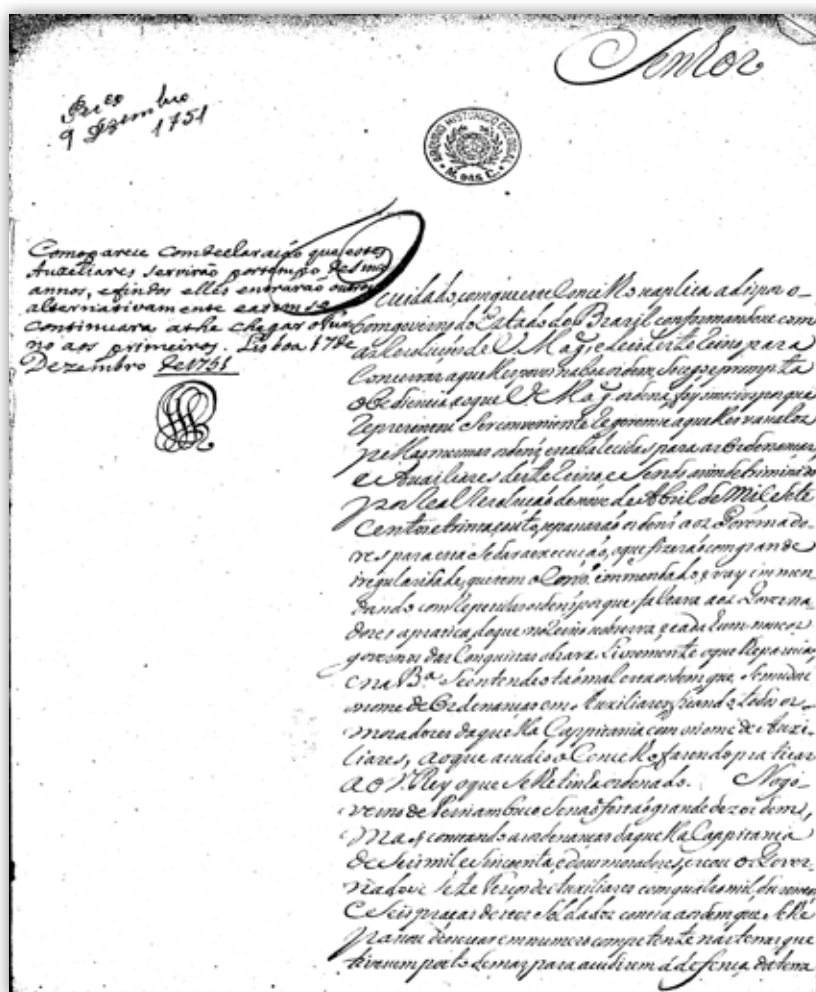 Senhor
9 Dezembro
1751
ARQUIVO HISTÓRICO COLONIAL
M. DAS C.
Como parece com declaração que estes
Auxeliares servirão por tempo de
annos, e findos elles entrarão outros
alternativamente e assim se
continuara athe chegar o tur
no aos primeiros. Lisboa 17 de
Dezembro de 1751
cuidado, com que este Conco se aplica a dispor o
bom governo do Estado do Brazil conformandose com
as Resoluçois de V. Mag. e leis deste Reino para
Concervar aquelles povos na boa ordem, socego, e prompta
obediencia, ao que V. Mag. ordena, foy
Reprezentar Ser conveniente Se governem aquelles vassalos
pellas mesmas ordenz estabalecidas para as Ordenanças
e Auxiliares deste Reino, e Sendo assim detriminado
por Real Rezolução de nove de Abril de Mil e sete
centos e trinta, e outo, se passarão ordenz aos Governado
res para esta Se dar a execução, o que fizerão com grande
irregularidade, que tem o Conso. immendado, e vay immen
dando com Repetidas ordenz porque faltava aos Governa
dores a pratica, do que no Reino se observa, e cada hum nos
governos das Conquistas obrava Livremente o que lhe parecia,
e na Ba. Se entendeo tão mal esta ordem que, Se mudou
nome de Ordenanças em Auxiliares, ficando todos os
moradores daquella Cappitania com o nome de Auxi
liares, ao que acudio o Conco, fazendo praticar
ao V. Rey o que Se lhe tinha ordenado. No go
verno de Pernambuco Se não foi tão grande dezordem,
Mas constando as ordenanças daquella Cappitania
de Seis mil e Sincoenta, e dous moradores, creou o Gover
nador Sete Terços de Auxiliares com quatro mil, duzentos
e Seis praças de Soldados contra a ordem que Se lhe
passou de os crear em numero competente nas terras que
tivessem porto de mar para acudirem á defença da terra